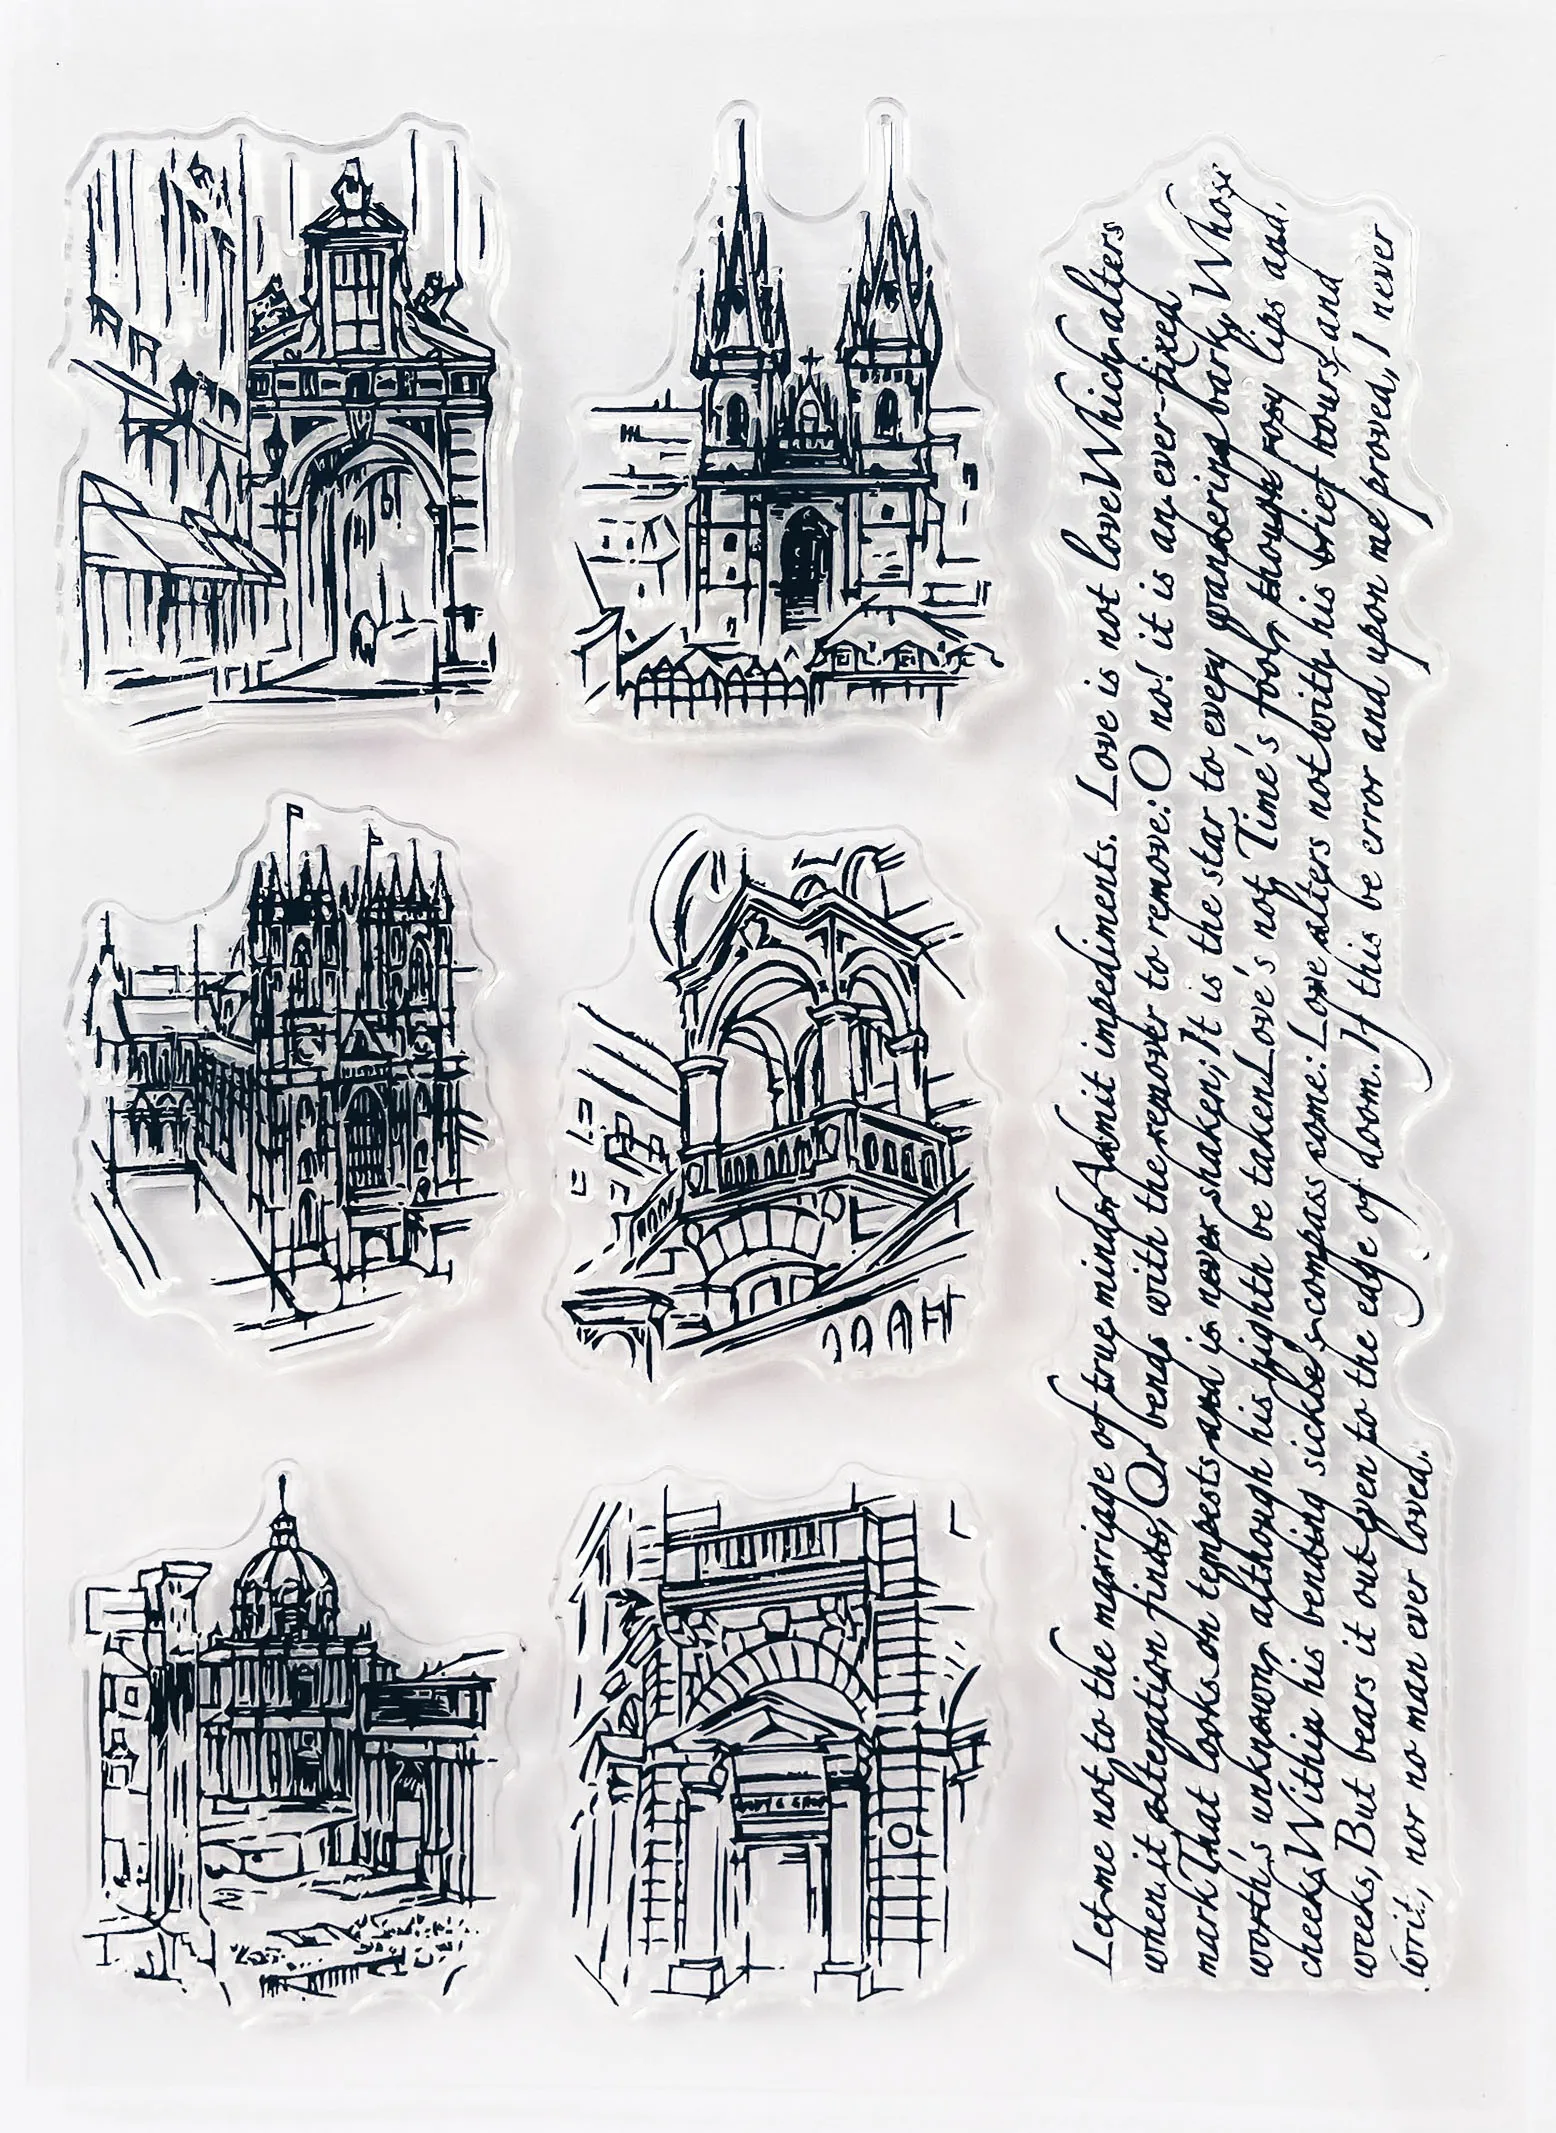 Let me not to the marriage of true minds Admit impediments. Love is not love Which alters
when it alteration finds, Or bends with the remover to remove: O no! it is an ever-fixed
mark That looks on tempests and is never shaken; It is the star to every wandering bark, Whose
worth's unknown, although his highth be taken Love's not Time's fool, though rosy lips and,
cheeks Within his bending sickle's compass come: Love alters not with his brief hours and
weeks, But bears it out even to the edge of doom. If this be error and upon me proved, I never
writ, nor no man ever loved.